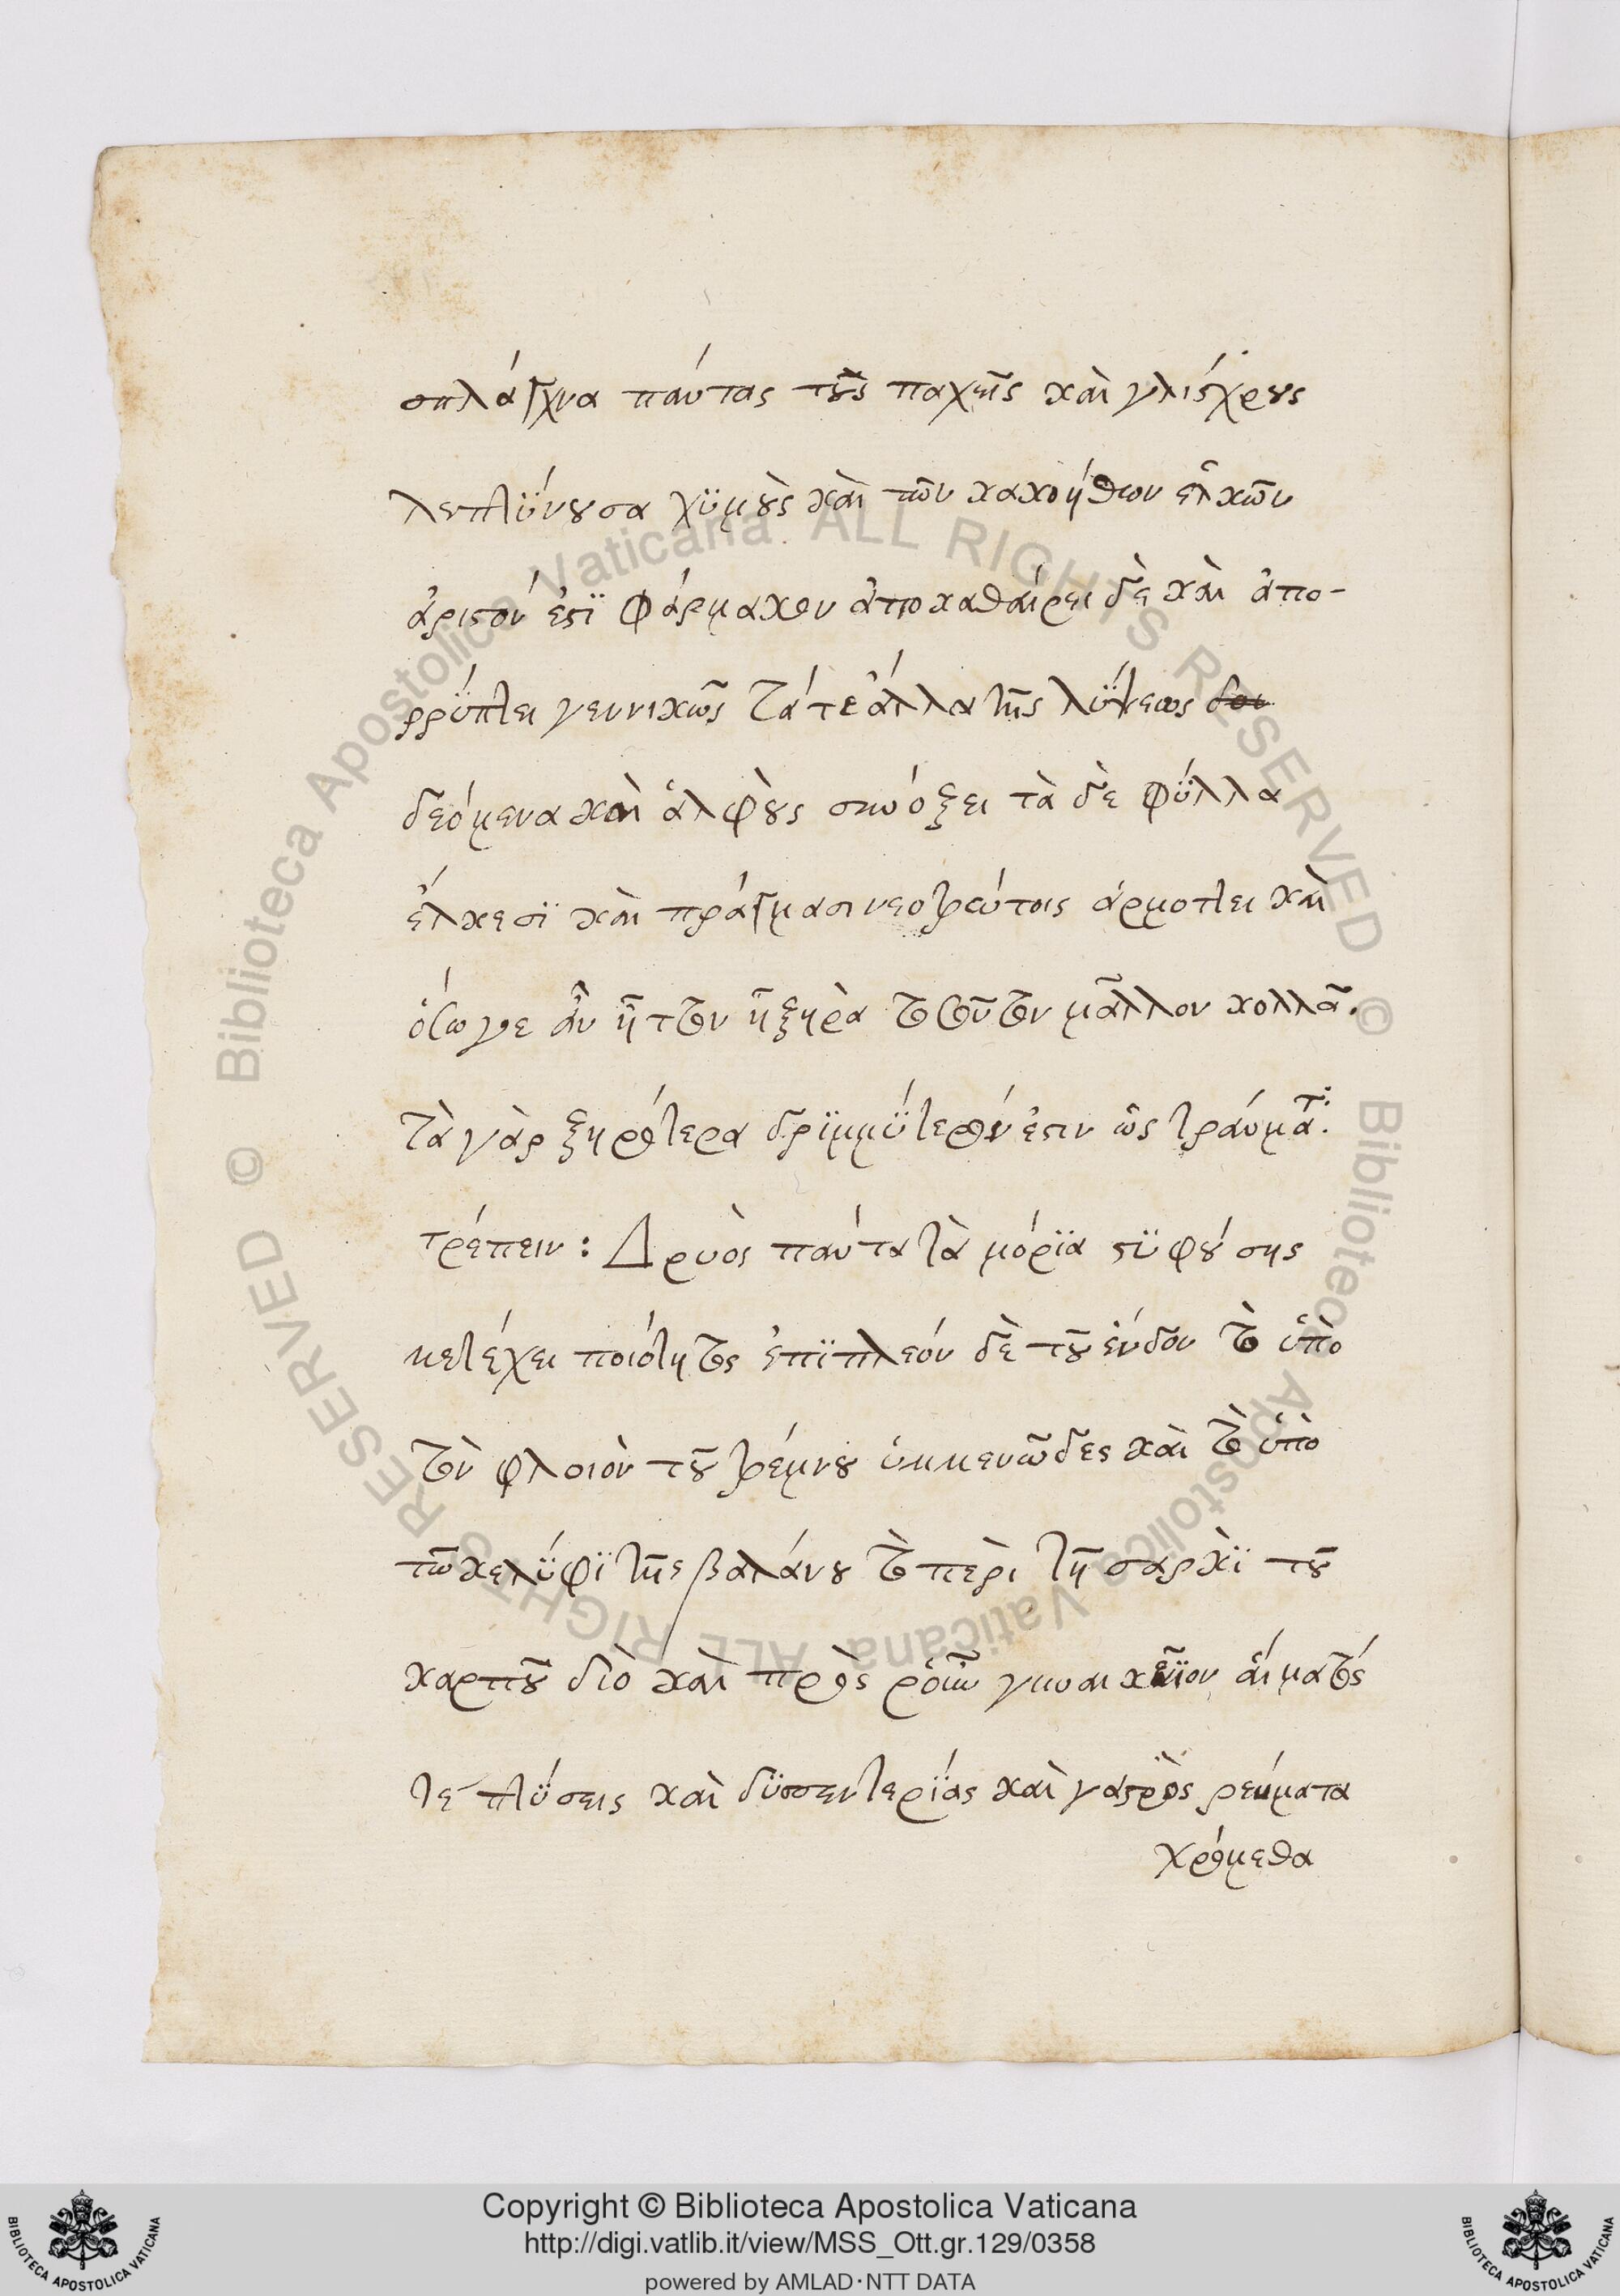 σπλάγχνα πάντας τοῦς παχεῖς καὶ γλίσχρους
λεπτΰνουσα χϋμοὺς καὶ τῶν κακοήθων ἑλκῶν
ἄριστόν ἐστϊ φάρμακον ἀποκαθαίρει δὲ καὶ ἀπο-
ρρΰπτει γεννικῶς τά τε ἄλλα τῆς λΰψεως
δεόμενα καὶ ἀλφοὺς σὺν ὄξει τὰ δὲ φΰλλα
ἕλκεσϊ καὶ πράγμασι νεοτρώτοις ἁρμοττει καὶ
ὅσω γε ἂν ἧττον ἦ ξηρὰ τοσοῦτον μᾶλλον κολλᾶ.
τὰ γὰρ ξηρότερα δρϊμμΰτερόν ἐστιν ὡς τραύματ
τρέπειν : Δρυὸς πάντα τὰ μόρϊα στϋφούσης
μετέχει ποιότητος ἐπϊπλεόν δὲ τοῦ ἔνδον τὸ ὑπὸ
τὸν φλοιὸν τοῦ πρέμνου ὑμμενῶδες καὶ τὸ ὑπὸ
τῶ κελΰφϊ τῆς βαλάνου τὸ πὲρι τῆ σαρκὶ τοῦ
καρποῦ διὸ καὶ πρὸς ῥοῦν γυναικεῖον αἵματός
τέ πτΰσεις καὶ δϋσσεντερΐας καὶ γαστρὸς ρεύματα
χρόμεθα
Copyright © Biblioteca Apostolica Vaticana
http://digi.vatlib.it/view/MSS_Ott.gr.129/0358
powered by AMLAD·NTT DATA